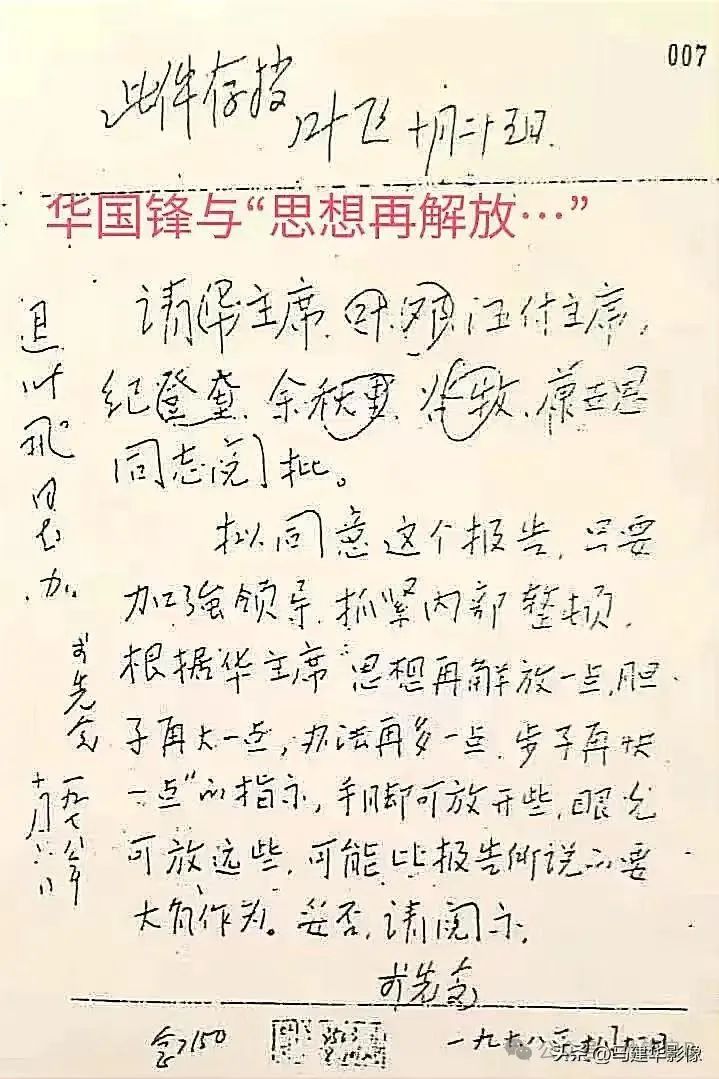 007
此件存档
叶飞 十月二十五日
华国锋与“思想再解放…”
请华主席、叶、邓、汪付主席,
纪登奎、余秋里、谷牧、康世恩
同志阅批。
拟同意这个报告,只要
加强领导,抓紧内部整顿,
根据华主席“思想再解放一点,胆
子再大一点,办法再多一点,步子再快
一点”的指示,手脚可放开些,眼光
可放远些,可能比报告所说的要
大有作为。妥否,请阅示。
李先念
退叶飞同志办。
李先念
一九七八年
7150
一九七八年十月十二日
头条@马建华影像